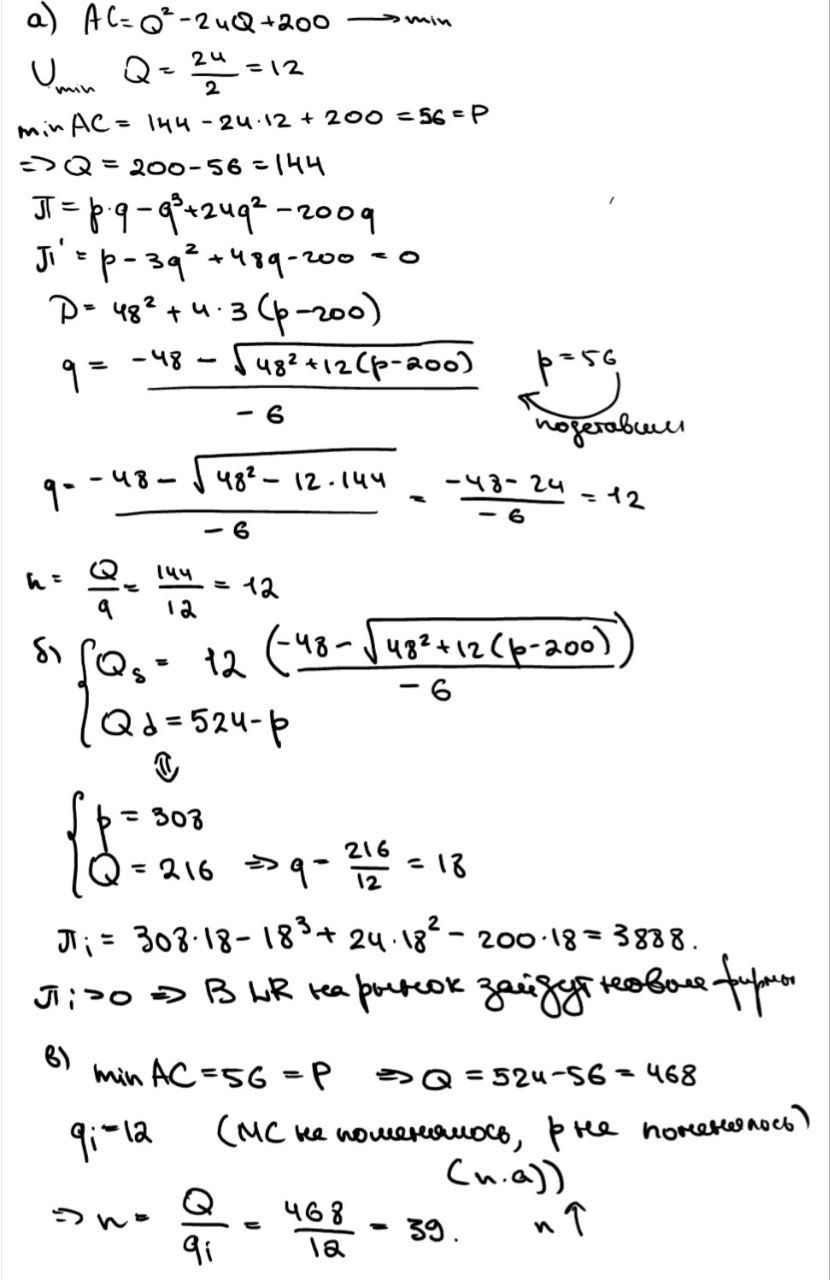 а) AC = Q² - 24Q + 200 → min
∪ min Q = 24/2 = 12
min AC = 144 - 24·12 + 200 = 56 = P
=> Q = 200 - 56 = 144
π = p·q - q³ + 24q² - 200q
π' = p - 3q² + 48q - 200 = 0
D = 48² + 4·3(p - 200)
q = (-48 - √(48² + 12(p - 200)))/(-6) p = 56
подставим
q = (-48 - √(48² - 12·144))/(-6) = (-48 - 24)/(-6) = 12
n = Q/q = 144/12 = 12
б) { Qs = 12 ((-48 - √(48² + 12(p - 200)))/(-6))
Qd = 524 - p
⇓
{ p = 308
Q = 216 => q = 216/12 = 18
πi = 308·18 - 18³ + 24·18² - 200·18 = 3888.
πi > 0 => В LR на рынок зайдут новые фирмы
в) min AC = 56 = P => Q = 524 - 56 = 468
qi = 12 (MC не поменялось, p не поменялось)
(п.а))
=> n = Q/qi = 468/12 = 39. n ↑